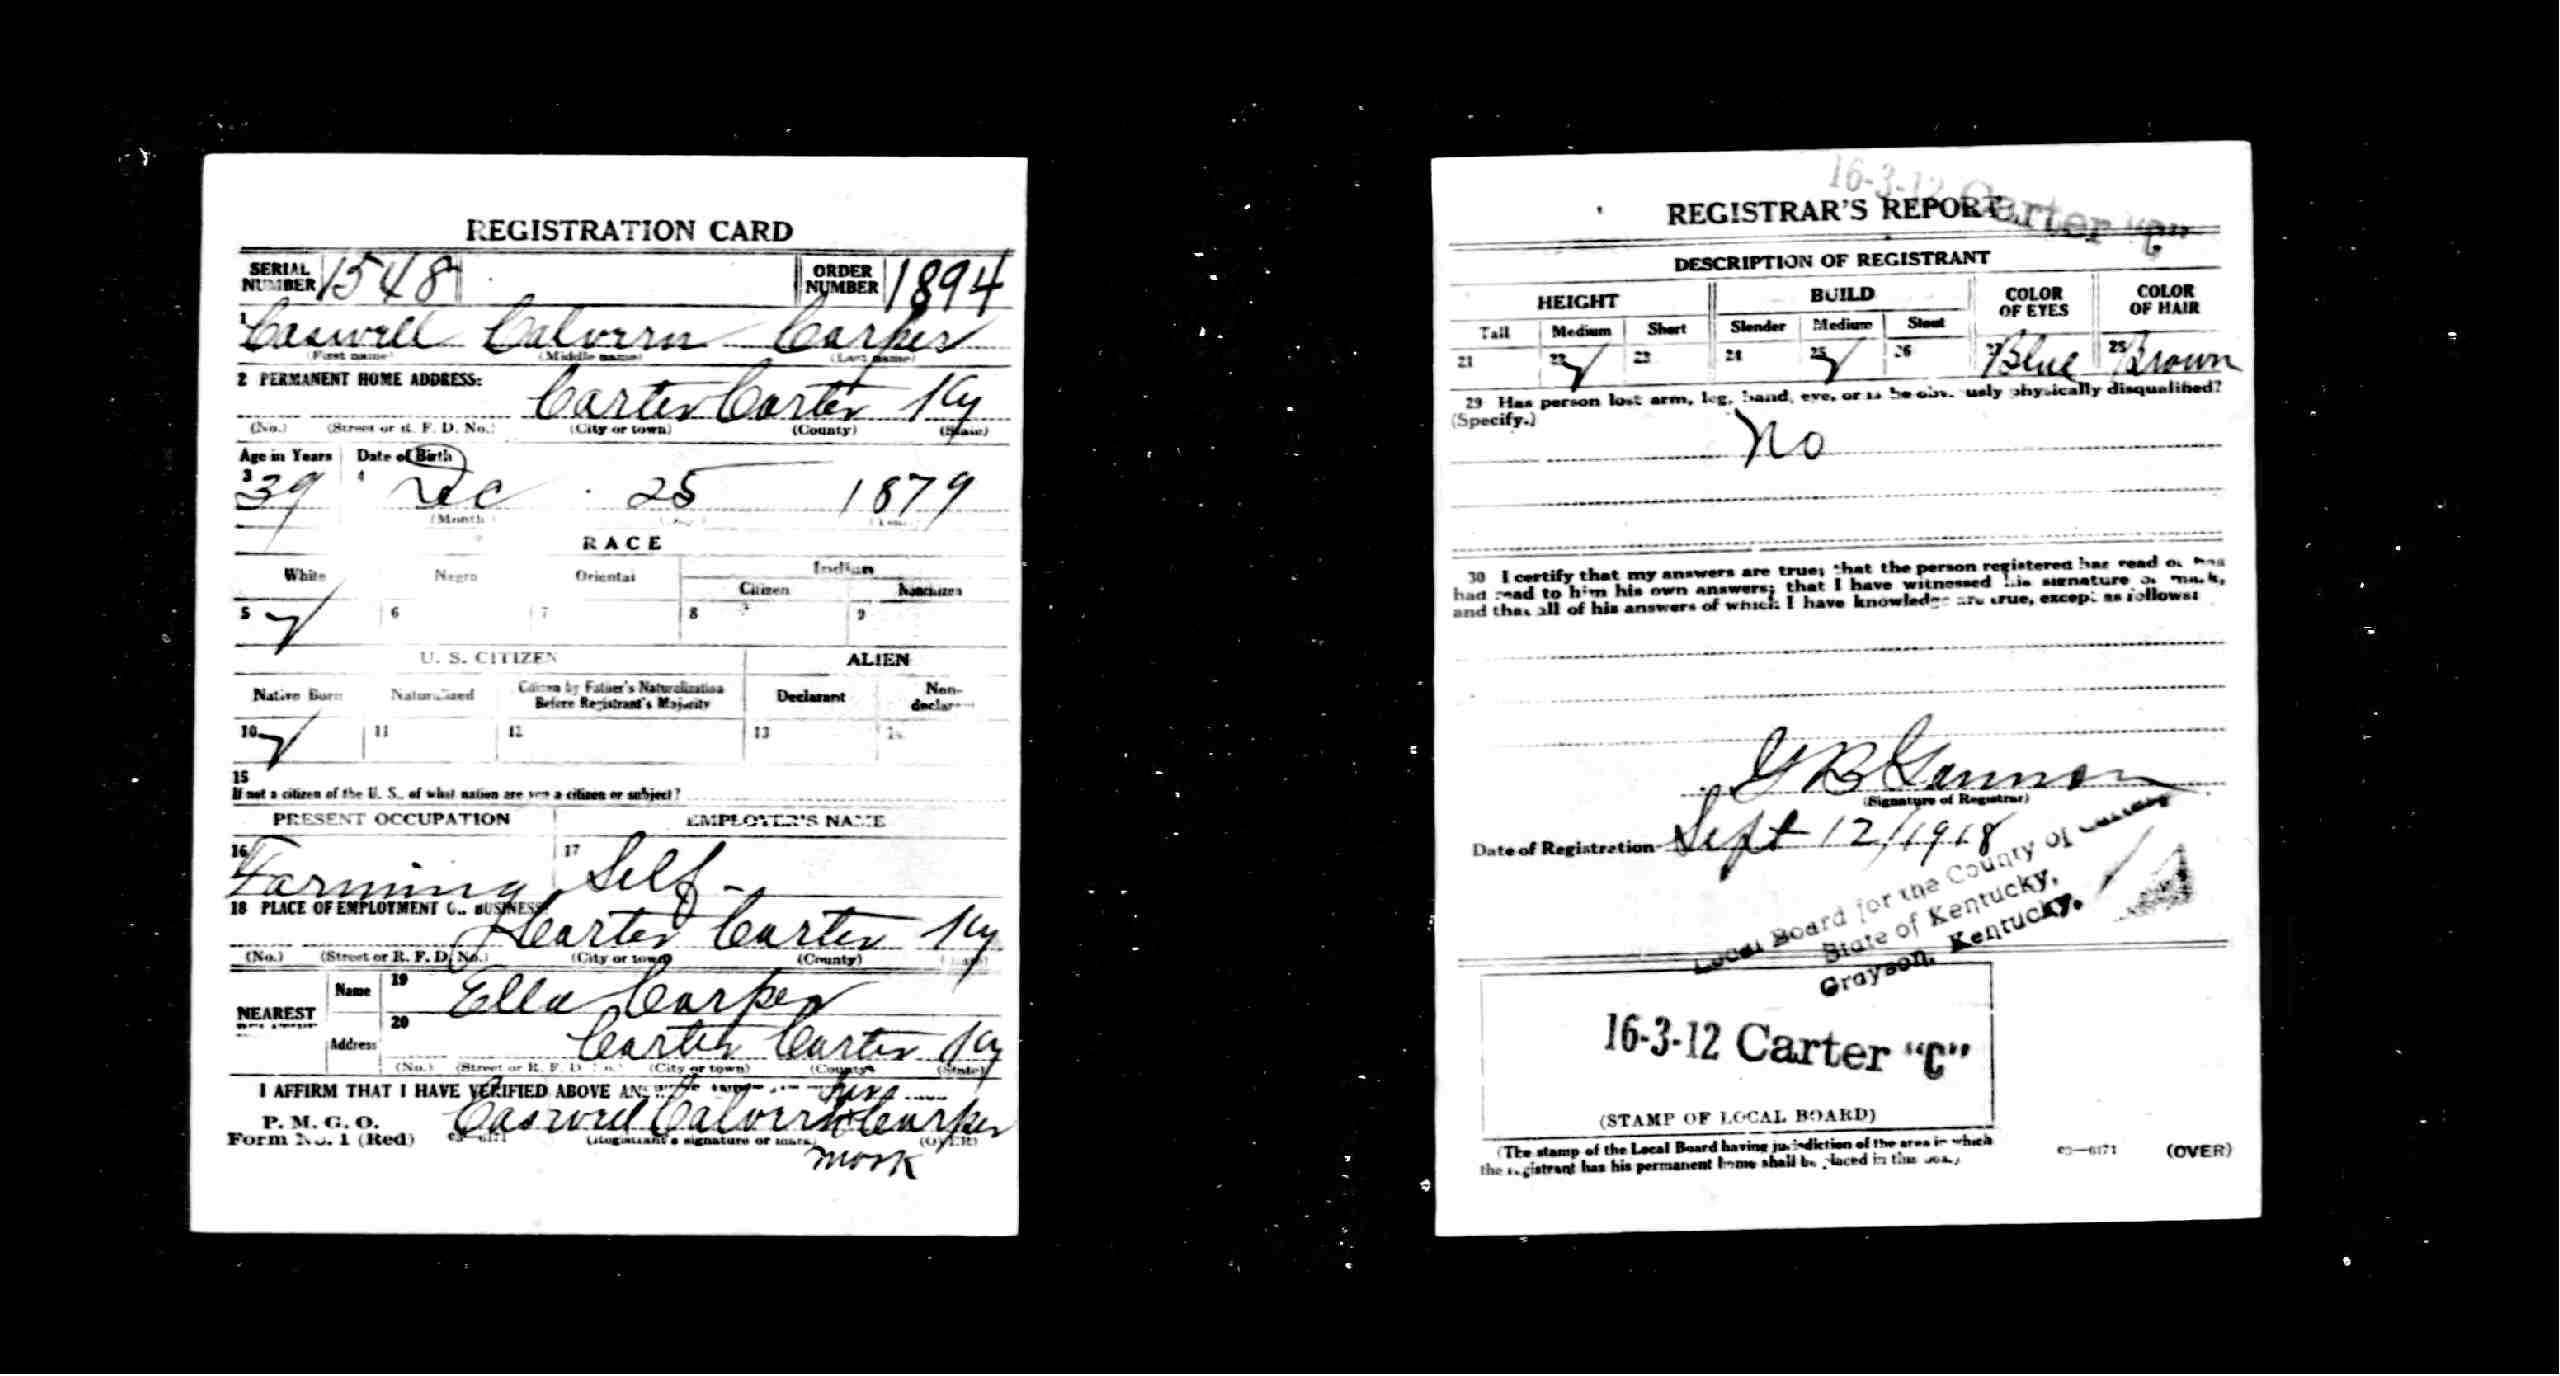 REGISTRATION CARD
SERIAL NUMBER 1548 ORDER NUMBER 1894
1 Caswell Calvern Carper
(First name) (Middle name) (Last name)
2 PERMANENT HOME ADDRESS:
Carter Carter Ky
(No.) (Street or R. F. D. No.) (City or town) (County) (State)
Age in Years Date of Birth
3 39 4 Dec 25 1879
(Month)
RACE
White Negro Oriental Indian
Citizen Noncitizen
5 ✓ 6 7 8 9
U. S. CITIZEN ALIEN
Native Born Naturalized Citizen by Father's Naturalization Before Registrant's Majority Declarant Non-declarant
10 ✓ 11 12 13 14
15
If not a citizen of the U. S., of what nation are you a citizen or subject?
PRESENT OCCUPATION EMPLOYER'S NAME
16 Farming 17 Self -
18 PLACE OF EMPLOYMENT OR BUSINESS
Carter Carter Ky
(No.) (Street or R. F. D. No.) (City or town) (County)
NEAREST Name 19 Ella Carper
Address 20 Carter Carter Ky
(No.) (Street or R. F. D. No.) (City or town) (County) (State)
I AFFIRM THAT I HAVE VERIFIED ABOVE
his
P. M. G. O. Caswell Calvern x Carper
Form No. 1 (Red) (Registrant's signature or mark) (OVER)
mark
16-3-12 Carter "C"
REGISTRAR'S REPORT
DESCRIPTION OF REGISTRANT
HEIGHT BUILD COLOR OF EYES COLOR OF HAIR
Tall Medium Short Slender Medium Stout
21 22 ✓ 23 24 25 ✓ 26 27 Blue 28 Brown
29 Has person lost arm, leg, hand, eye, or is he obviously physically disqualified?
(Specify.)
No
30 I certify that my answers are true; that the person registered has read or has
had read to him his own answers; that I have witnessed his signature or mark,
and that all of his answers of which I have knowledge are true, except as follows:
G B Gannon
(Signature of Registrar)
Date of Registration Sept 12, 1918
Local Board for the County of
State of Kentucky,
Grayson, Kentucky.
16-3-12 Carter "C"
(STAMP OF LOCAL BOARD)
(The stamp of the Local Board having jurisdiction of the area in which
the registrant has his permanent home shall be placed in this box.)
03—6171 (OVER)